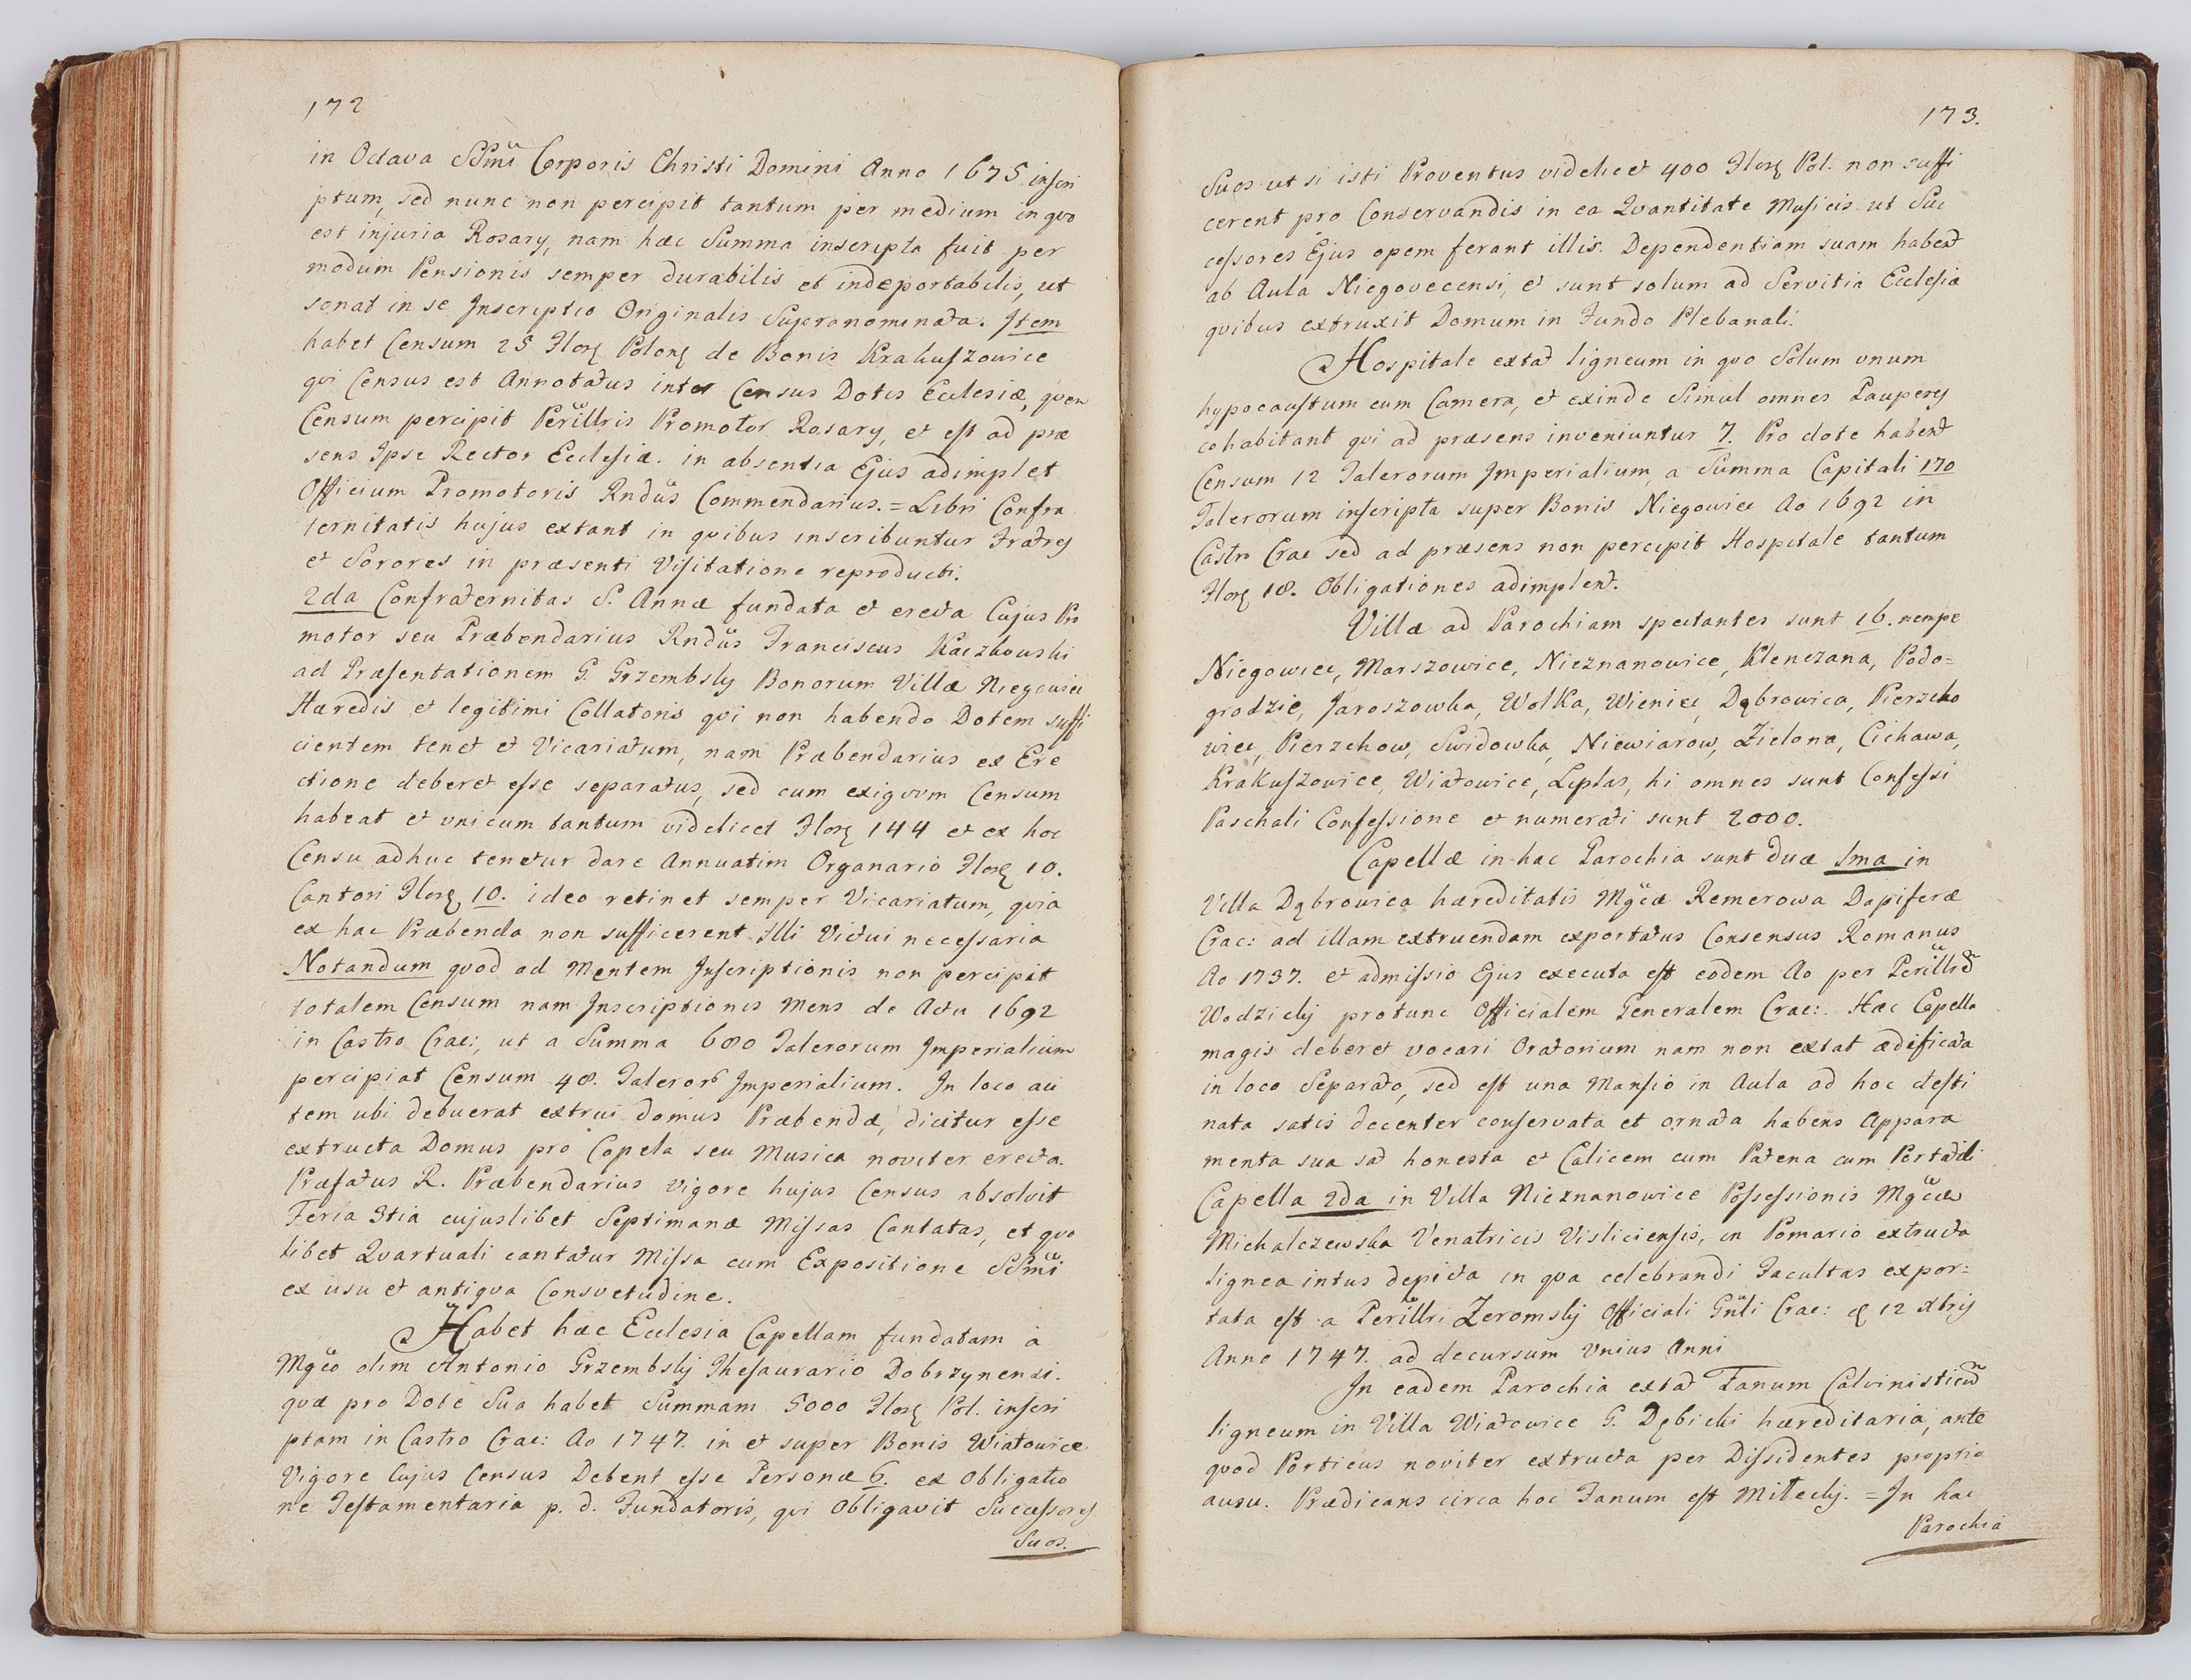 172
in Octava SSmi Corporis Christi Domini Anno 1675 inscri
ptum, sed nunc non percipit tantum per medium in qvo
est injuria Rosary, nam hæc Summa inscripta fuit per
modum Pensionis semper durabilis et indeportabilis, ut
sonat in se Inscriptio Originalis Supranominata. Item
habet Censum 25 Flor. Polon. de Bonis Krakuszowice
qvi Census est Annotatus inter Census Dotis Ecclesiæ, qvem
Censum percipit Perillris Promotor Rosary, et est ad præ
sens Ipse Rector Ecclesiæ. in absentia Ejus adimplet
Officium Promotoris Rndus Commendarius. = Libri Confra
ternitatis hujus extant in qvibus inscribuntur Fratres
et Sorores in præsenti Visitatione reproducti.
2da Confraternitas S. Annæ fundata et erecta Cujus Pro
motor seu Præbendarius Rndus Franciscus Kaczkowski
ad Præsentationem G. Grzembsky Bonorum Villæ Niegowice
Hæredis et legitimi Collatoris qvi non habendo Dotem suffi
cientem tenet et Vicariatum, nam Præbendarius ex Ere
ctione deberet esse separatus, sed cum exigvvm Censum
habeat et vnicum tantum videlicet Flor. 144 et ex hoc
Censu adhuc tenetur dare Annuatim Organario Flor. 10.
Cantori Flor. 10. ideo retinet semper Vicariatum, qvia
ex hac Præbenda non sufficerent Illi Victui necessaria
Notandum qvod ad Mentem Inscriptionis non percipit
totalem Censum nam Inscriptionis Mens de Actu 1692
in Castro Crac:, ut a Summa 600 Talerorum Imperialium
percipiat Censum 48. Taleror Imperialium. In loco au
tem ubi debuerat extrui domus Præbendæ, dicitur esse
extructa Domus pro Capela seu Musica noviter erecta.
Præfatus R. Præbendarius vigore hujus Census absolvit
Feria 3tia cujuslibet Septimanæ Missas Cantatas, et qvo
libet Qvartuali cantatur Missa cum Expositione SSmi
ex usu et antiqva Consvetudine.
Habet hæc Ecclesia Capellam fundatam à
Mgco olim Antonio Grzembsky Thesaurario Dobrzynensi.
qvæ pro Dote Sua habet Summam 5000 Flor. Pol. inscri
ptam in Castro Crac: Ao 1747. in et super Bonis Wiatowice
Vigore Cujus Census Debent esse Personæ 6. ex obligatio
ne Testamentaria p. d. Fundatoris, qvi Obligavit Successores
Suos.
173.
Suos ut si isti Proventus videlicet 400 Flor. Pol. non suffi
cerent pro Conservandis in ea Qvantitate Musicis ut Suc
cessores Ejus opem ferant illis. Dependentiam suam habent
ab Aula Niegovecensi, et sunt solum ad Servitia Ecclesiæ
qvibus extruxit Domum in Fundo Plebanali.
Hospitale extat ligneum in qvo Solum vnum
hypocaustum cum Camera, et exinde Simul omnes Pauperes
cohabitant qvi ad præsens inveniuntur 7. Pro dote habent
Censum 12 Talerorum Imperialium a Summa Capitali 170
Talerorum inscripta super Bonis Niegowice Ao 1692 in
Castro Crac sed ad præsens non percipit Hospitale tantum
Flor. 18. Obligationes adimplent.
Villæ ad Parochiam spectantes sunt 16. nempe
Niegowice, Marszowice, Nieznanowice, Klenczana, Podo=
grodzie, Jaroszowka, Wolka, Wieniec, Dąbrowica, Pierzcho
wice, Pierzchow, Swidowka, Niewiarow, Zielona, Cichawa,
Krakuszowice, Wiatowice, Leplas, hi omnes sunt Confessi
Paschali Confessione et numerati sunt 2000.
Capellæ in hac Parochia sunt duæ 1ma in
Villa Dąbrowica hæreditatis Mgcæ Remerowa Dapiferæ
Crac: ad illam extruendam exportatus Consensus Romanus
Ao 1737. et admissio Ejus executa est eodem Ao per Perillrem
Wodzicky protunc Officialem Generalem Crac:. Hæc Capella
magis deberet vocari Oratorium nam non extat ædificata
in loco Separato, sed est una Mansio in Aula ad hoc desti
nata satis decenter conservata et ornata habens Appara
menta sua sat honesta et Calicem cum Patena cum Portatili
Capella 2da in Villa Nieznanowice Possessionis Mgcæ
Michalczewska Venatricis Visliciensis, in Pomario extructa
lignea intus depicta in qva celebrandi Facultas expor=
tata est a Perillri Zeromsky Officiali Gnli Crac: 12 Xbris
Anno 1747. ad decursum Vnius Anni
In eadem Parochia extat Fanum Calvinisticum
ligneum in Villa Wiatowice G. Dębicki hæreditaria, ante
qvod Porticus noviter extructa per Dissidentes proprio
ausu. Prædicans circa hoc Fanum est Mitecky. = In hac
Parochia